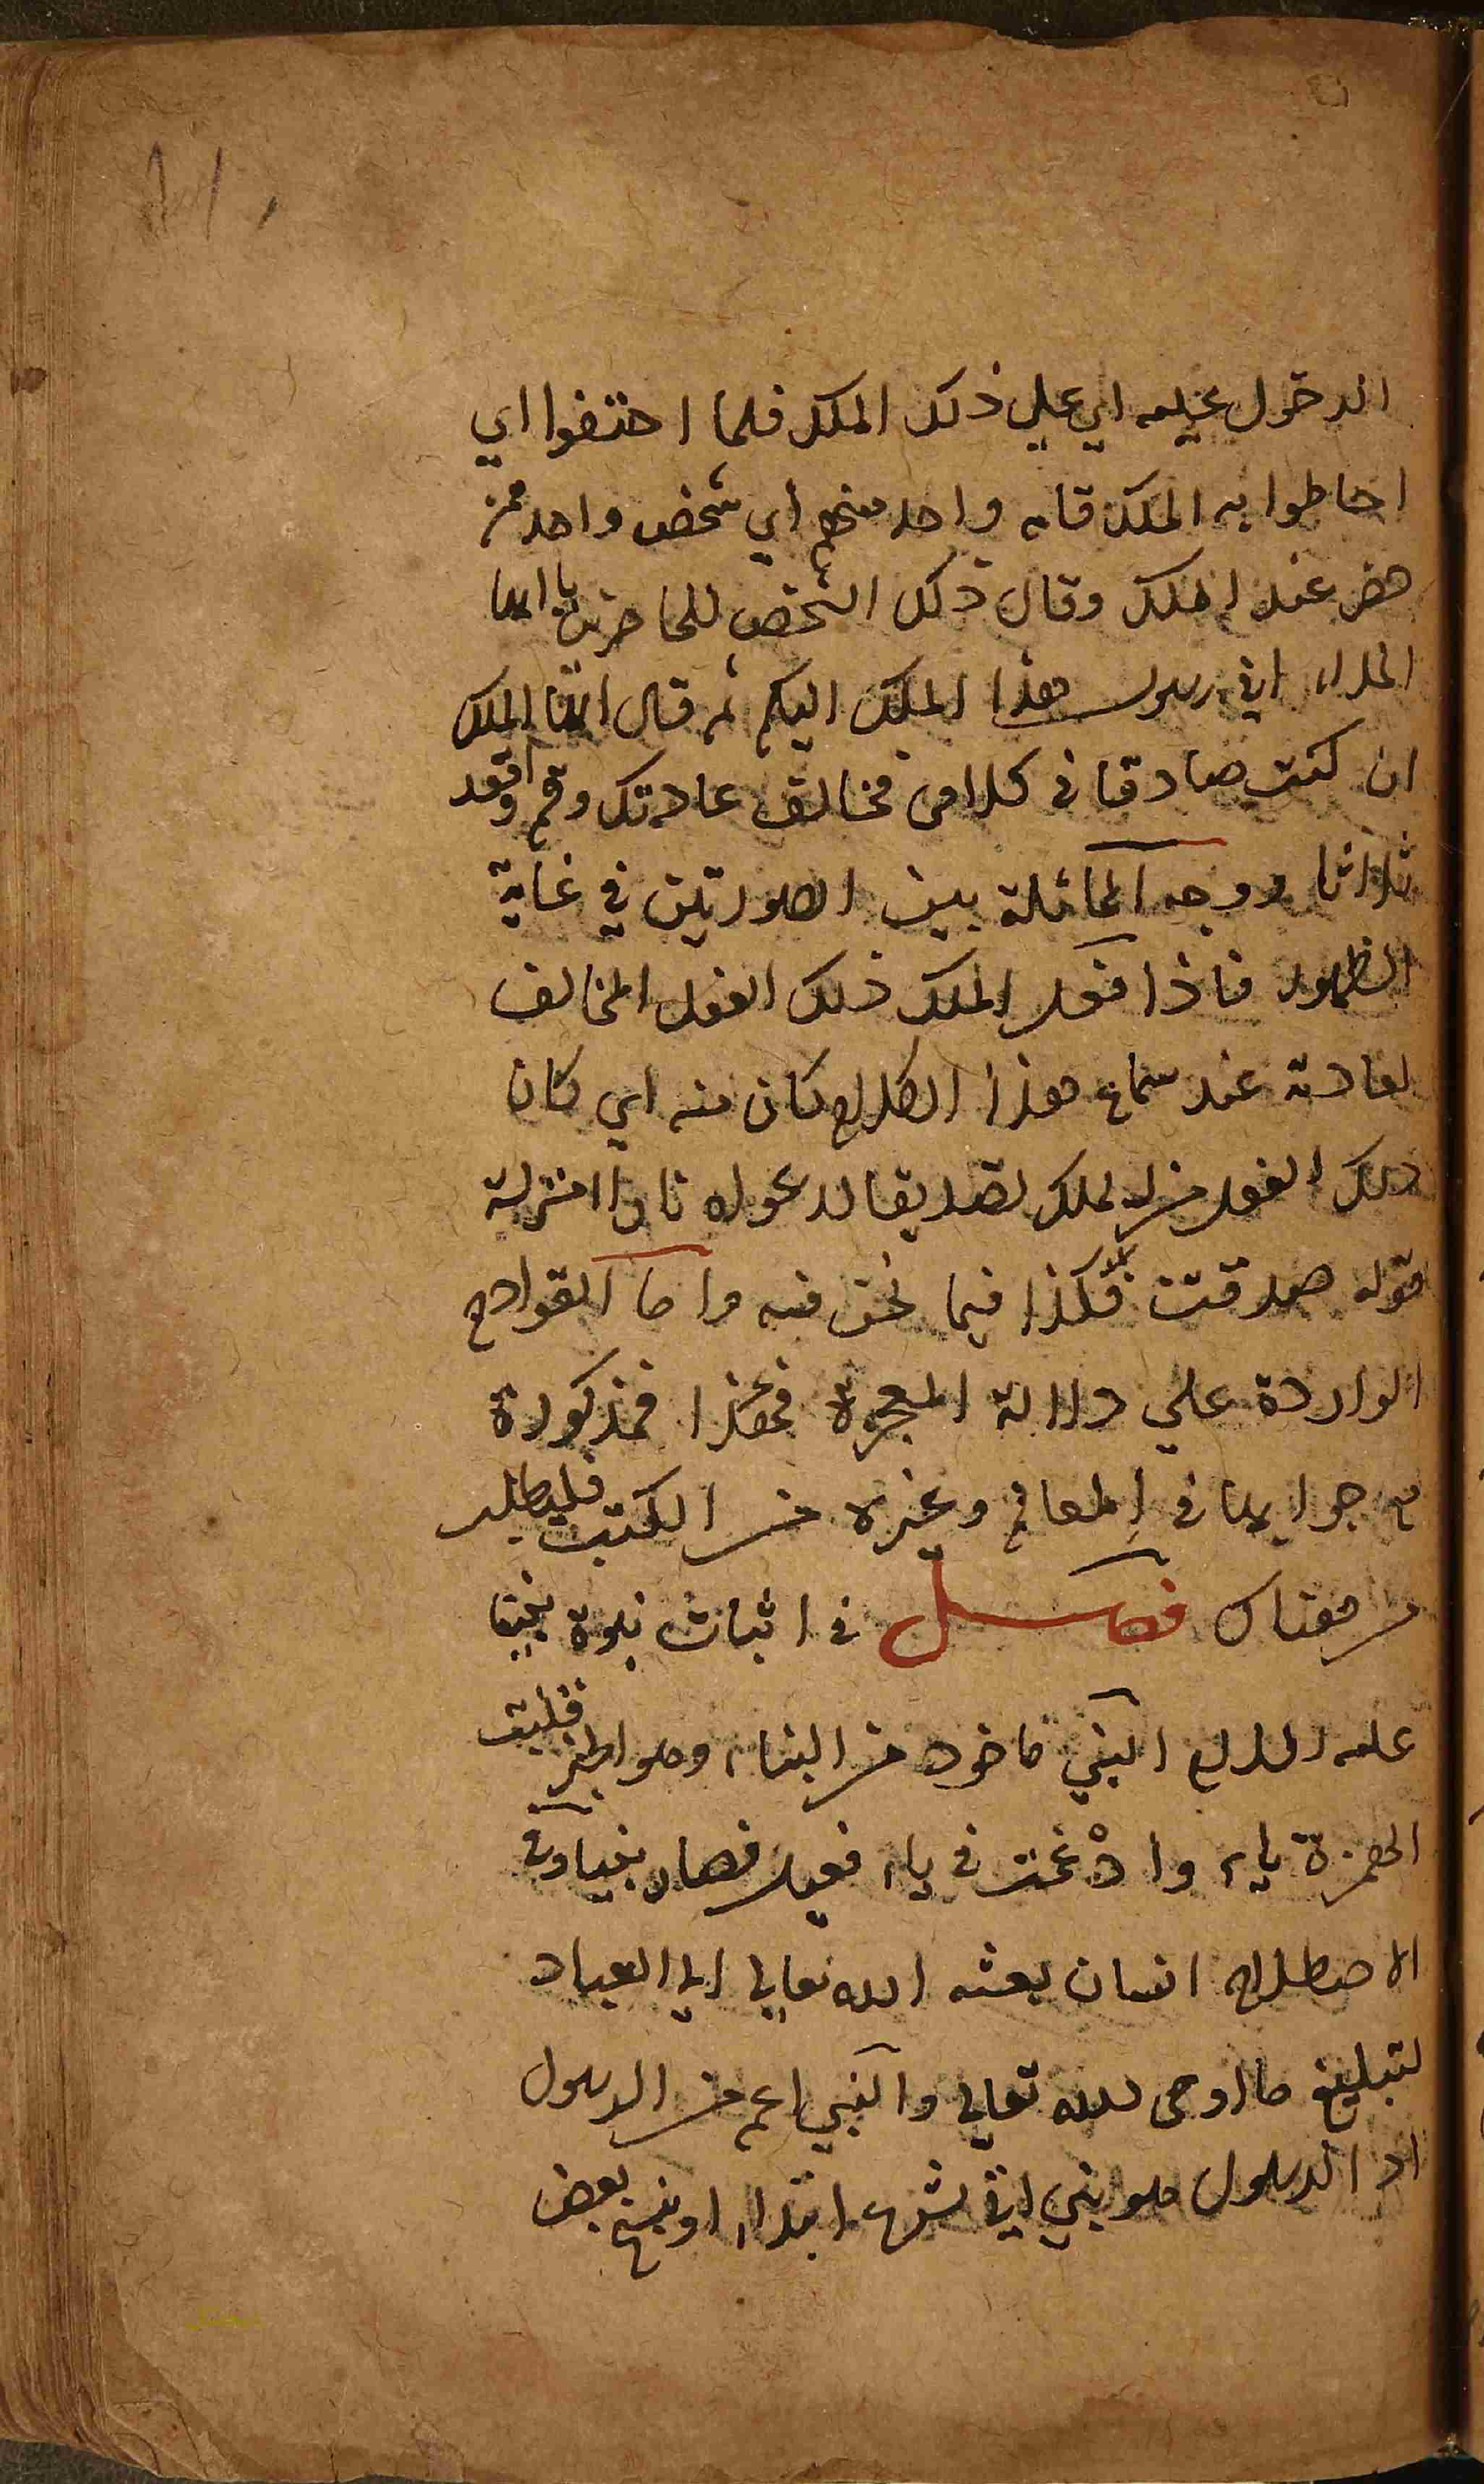 الدخول عليه اي علي ذلك الملك فلما احتفوا اي
احاطوا به الملك قام واحد منهم أي شخص واحد ممن
حضر عند الملك وقال ذلك الشخص للحاضرين يا ايها
الملاء اني رسول هذا الملك اليكم ثم قال ايها الملك
ان كنت صادقا في كلامي فخالف عادتك وقم واقعد
ثلاثا ووجه المماثلة بين الصورتين في غاية
الظهور فاذا فعل الملك ذلك الفعل المخالف
لعادته عند سماع هذا الكلام كان منه اي كان
ذلك الفعل من الملك تصديقا لدعواه نازلا منزلة
قوله صدقت فكذا فيما نحن فيه واما القوادح
الواردة علي دلالة المعجزة فمذكورة
مع جوابها في المعالم وغيره من الكتب فليطلب
من هناك فصل في اثبات نبوة نبينا
عليه السلام النبي ماخوذ من النباء وهو الخبر فقلبت
الهمزة ياء وادْغمت في ياء فعيل فصار نبيا وفي
الاصطلاح انسان بعثه الله تعالي الي العباد
لتبليغ ما اوحي الله تعالي والنبي اعم من الرسول
اذ الرسول هو نبي اتي بشرع ابتداء او بنسخ بعض